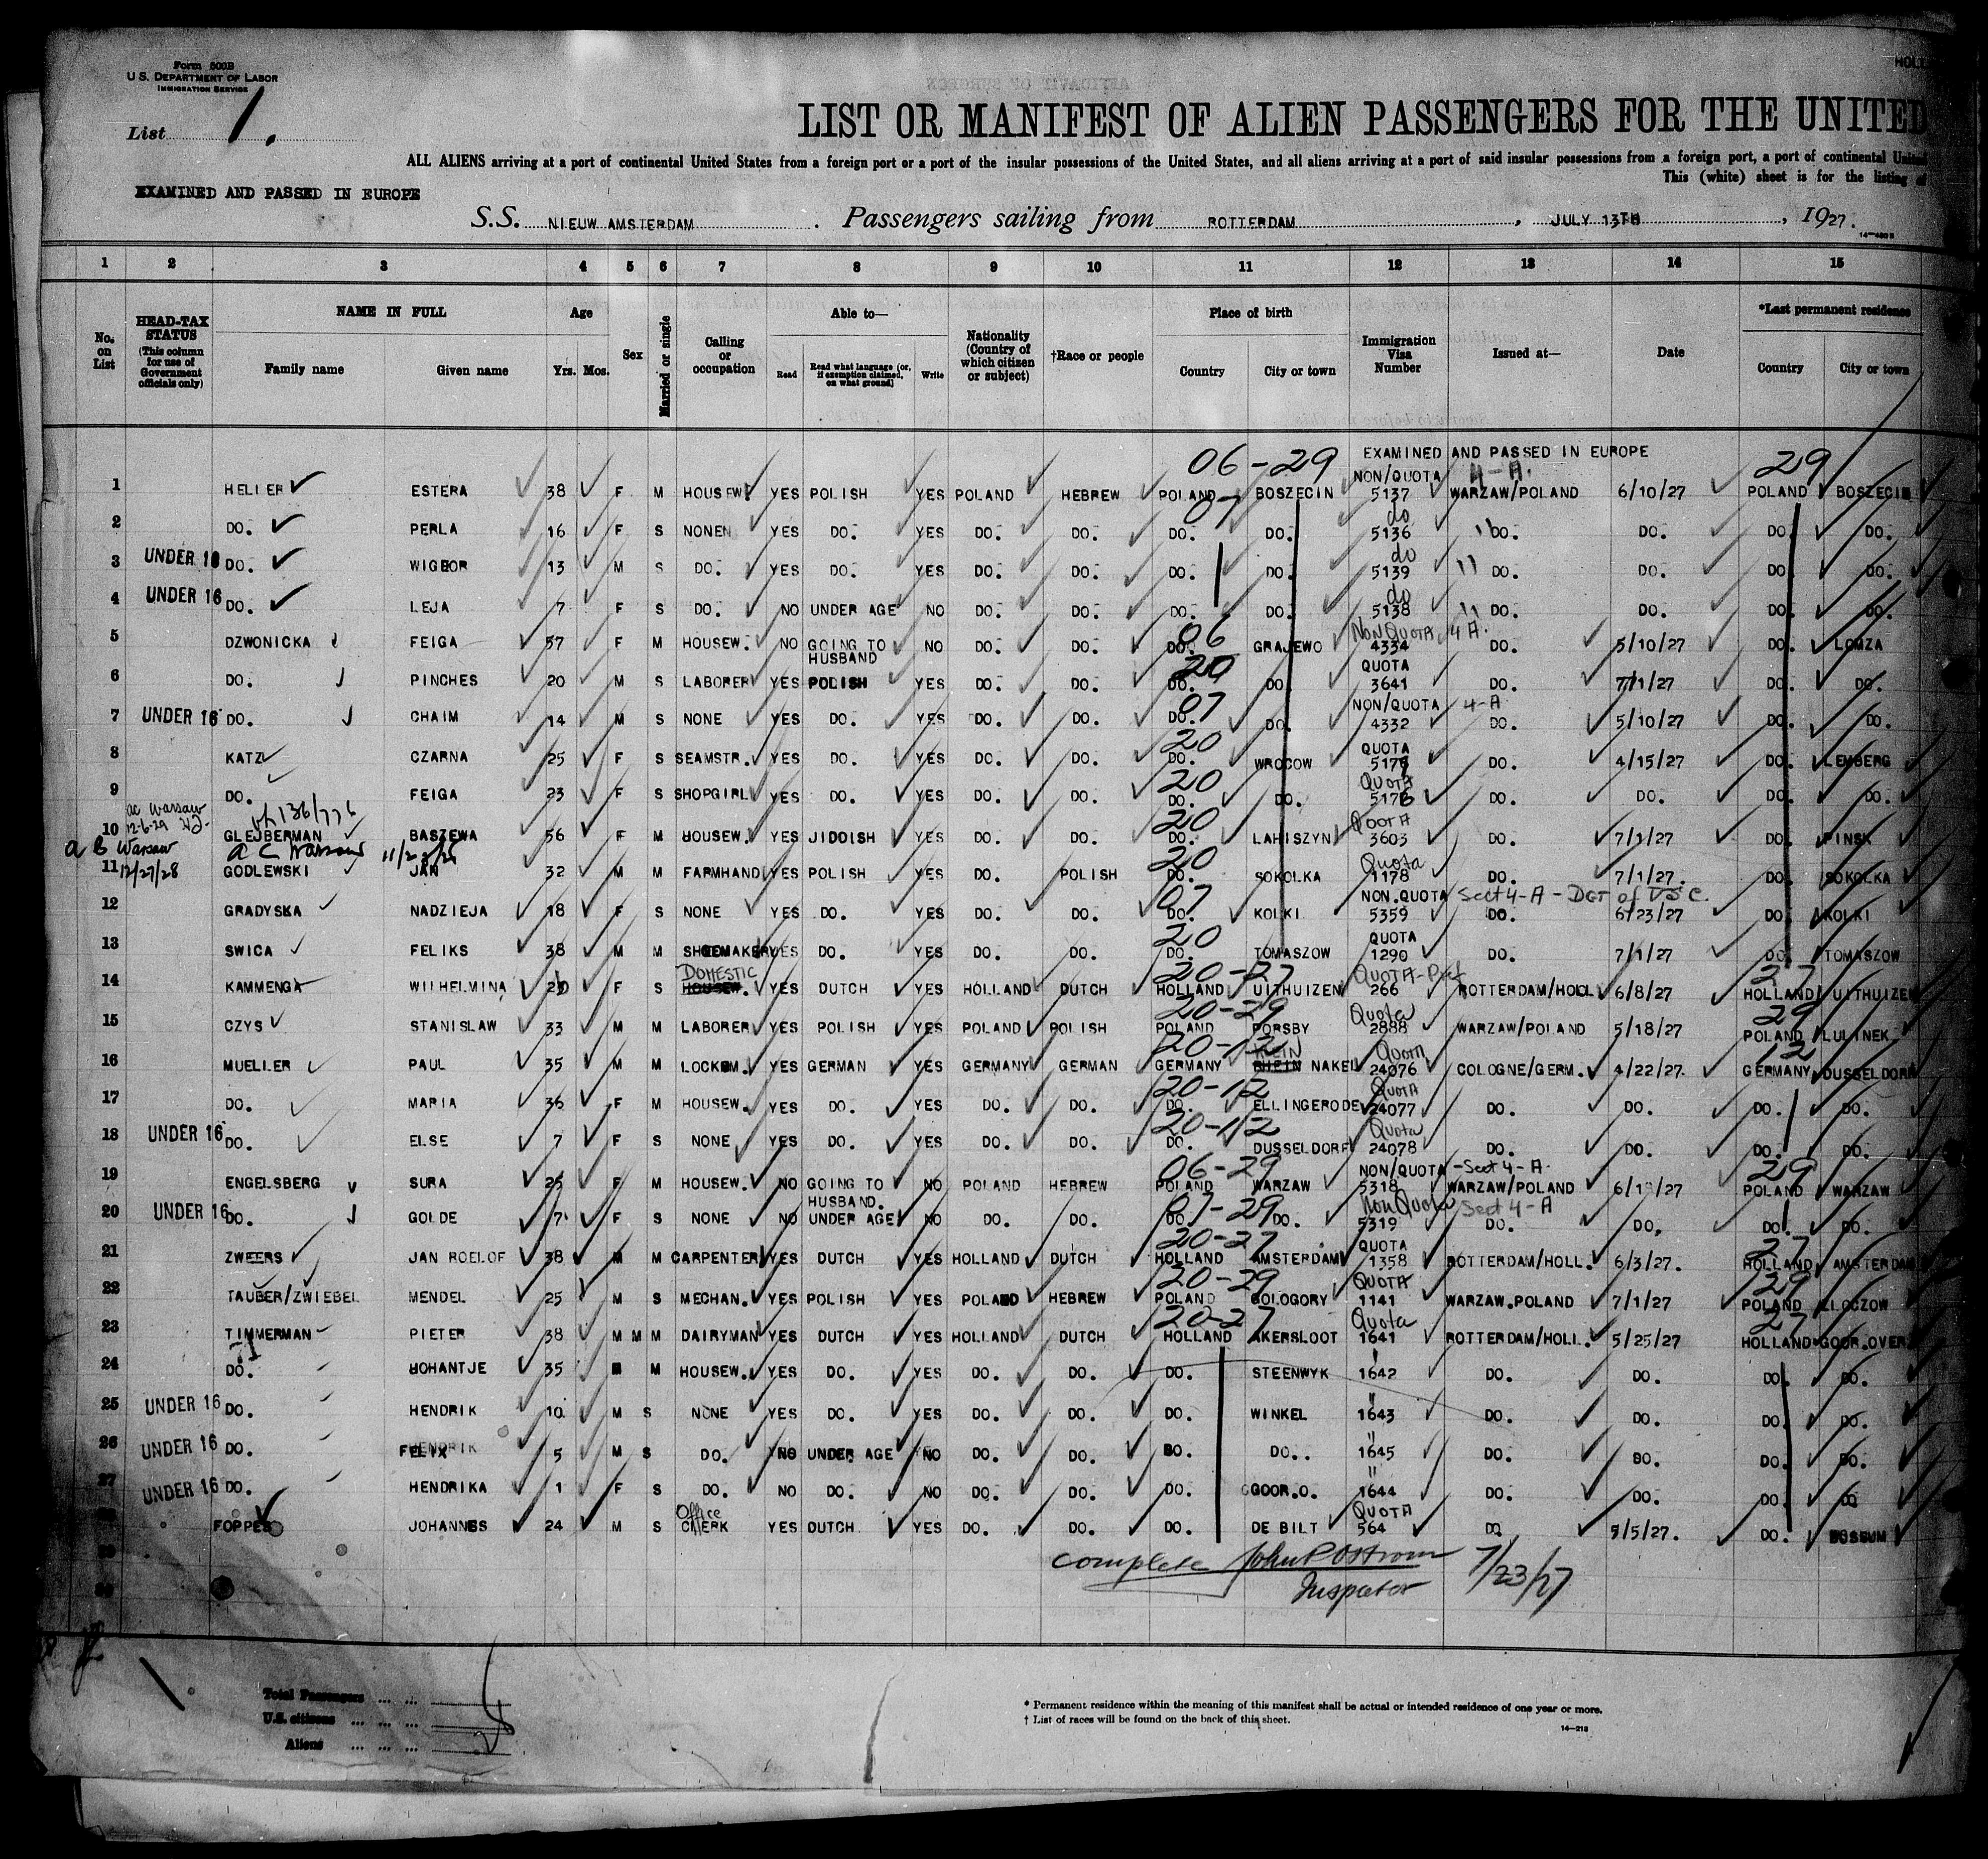 Form 500B
U.S. DEPARTMENT OF LABOR
IMMIGRATION SERVICE
HOLL
List 1.
LIST OR MANIFEST OF ALIEN PASSENGERS FOR THE UNITED
ALL ALIENS arriving at a port of continental United States from a foreign port or a port of the insular possessions of the United States, and all aliens arriving at a port of said insular possessions from a foreign port, a port of continental United
This (white) sheet is for the listing of
EXAMINED AND PASSED IN EUROPE
S.S. NIEUW AMSTERDAM. Passengers sailing from ROTTERDAM, JULY 13TH, 1927.
1 2 3 4 5 6 7 8 9 10 11 12 13 14 15
No. on List
HEAD-TAX STATUS (This column for use of Government officials only)
NAME IN FULL Family name Given name
Age Yrs. Mos.
Sex
Married or single
Calling or occupation
Able to— Read Read what language (or, if exemption claimed, on what ground) Write
Nationality (Country of which citizen or subject)
†Race or people
Place of birth Country City or town
Immigration Visa Number
Issued at—
Date
*Last permanent residence Country City or town
06-29 EXAMINED AND PASSED IN EUROPE 29
NON/QUOTA 4-A.
1 HELLER ESTERA 38 F M HOUSEW. YES POLISH YES POLAND HEBREW POLAND BOSZECIN 5137 WARZAW/POLAND 6/10/27 POLAND BOSZECIN
07 do
2 DO. PERLA 16 F S NONE YES DO. YES DO. DO. DO. DO. 5136 " DO. DO. DO. DO.
do
3 UNDER 16 DO. WIGDOR 13 M S DO. YES DO. YES DO. DO. DO. DO. 5139 " DO. DO. DO. DO.
do
4 UNDER 16 DO. LEJA 7 F S DO. NO UNDER AGE NO DO. DO. DO. DO. 5138 " DO. DO. DO. DO.
06 NON QUOTA 4 A.
5 DZWONICKA FEIGA 57 F M HOUSEW. NO GOING TO HUSBAND NO DO. DO. DO. GRAJEWO 4334 DO. 5/10/27 DO. LOMZA
20 QUOTA
6 DO. PINCHES 20 M S LABORER YES POLISH YES DO. DO. DO. DO. 3641 DO. 7/1/27 DO. DO.
07 NON/QUOTA 4-A
7 UNDER 16 DO. CHAIM 14 M S NONE YES DO. YES DO. DO. DO. DO. 4332 DO. 5/10/27 DO. DO.
20 QUOTA
8 KATZ CZARNA 25 F S SEAMSTR. YES DO. YES DO. DO. DO. WROCOW DO. 4/15/27 DO. LEMBERG
20 QUOTA
9 DO. FEIGA 23 F S SHOPGIRL YES DO. YES DO. DO. DO. DO. DO. DO. DO. DO.
ac Warsaw 136/776 20 QUOTA
10 GLEJBERMAN BASZEWA 56 F M HOUSEW. YES JIDDISH YES DO. DO. DO. LAHISZYN 3603 DO. 7/1/27 DO. PINSK
Warsaw a C Warsaw 20 Quota
11 12/27/28 GODLEWSKI JAN 32 M M FARMHAND YES POLISH YES DO. POLISH DO. SOKOLKA 1178 DO. 7/1/27. DO. SOKOLKA
07 NON.QUOTA Sect 4-A - DGT of USC.
12 GRADYSKA NADZIEJA 18 F S NONE YES DO. YES DO. DO. DO. KOLKI 5359 DO. 6/23/27 DO. KOLKI
20 QUOTA
13 SWICA FELIKS 38 M M SHOEMAKER YES DO. YES DO. DO. DO. TOMASZOW 1290 DO. 7/1/27 DO. TOMASZOW
DOMESTIC 20-27 QUOTA-Pref 27
14 KAMMENGA WILHELMINA F S HOUSEW. YES DUTCH YES HOLLAND DUTCH HOLLAND UITHUIZEN 266 ROTTERDAM/HOLL 6/8/27 HOLLAND UITHUIZEN
20-29 Quota 29
15 CZYS STANISLAW 33 M M LABORER YES POLISH YES POLAND POLISH POLAND PORSBY 2888 WARZAW/POLAND 5/18/27 POLAND LULINEK
20-12 KLEIN Quota 12
16 MUELLER PAUL 35 M M LOCKSM. YES GERMAN YES GERMANY GERMAN GERMANY NAKEL 24076 COLOGNE/GERM. 4/22/27. GERMANY DUSSELDORF
20-12 QUOTA
17 DO. MARIA 36 F M HOUSEW. YES DO. YES DO. DO. DO. ELLINGERODE 24077 DO. DO. DO. DO.
20-12 Quota
18 UNDER 16 DO. ELSE 7 F S NONE YES DO. YES DO. DO. DO. DUSSELDORF 24078 DO. DO. DO. DO.
06-29 NON/QUOTA -Sect 4-A- 29
19 ENGELSBERG SURA 26 F M HOUSEW. NO GOING TO HUSBAND. NO POLAND HEBREW POLAND WARZAW 5318 WARZAW/POLAND POLAND WARZAW
07-29 Non Quota Sect 4-A
20 UNDER 16 DO. GOLDE 7 F S NONE NO UNDER AGE NO DO. DO. DO. DO. 5319 DO. DO. DO. DO.
20-27 QUOTA 27
21 ZWEERS JAN ROELOF 38 M M CARPENTER YES DUTCH YES HOLLAND DUTCH HOLLAND AMSTERDAM 1358 ROTTERDAM/HOLL. 6/3/27. HOLLAND AMSTERDAM
20-29 QUOTA 29
22 TAUBER/ZWIEBEL MENDEL 25 M S MECHAN. YES POLISH YES POLAND HEBREW POLAND GOLOGORY 1141 WARZAW.POLAND 7/1/27 POLAND ZLOCZOW
20-27 Quota 27
23 TIMMERMAN PIETER 38 M M M DAIRYMAN YES DUTCH YES HOLLAND DUTCH HOLLAND AKERSLOOT 1641 ROTTERDAM/HOLL. 5/25/27 HOLLAND GOOR.OVER
24 DO. JOHANTJE 35 M HOUSEW. YES DO. YES DO. DO. DO. STEENWYK 1642 DO. DO. DO. DO.
25 UNDER 16 DO. HENDRIK 10 M S NONE YES DO. YES DO. DO. DO. WINKEL 1643 DO. DO. DO. DO.
26 UNDER 16 DO. FELIX 5 M S DO. NO UNDER AGE NO DO. DO. DO. DO.. 1645 DO. DO. DO. DO.
27 UNDER 16 DO. HENDRIKA 1 F S DO. NO DO. NO DO. DO. DO. GOOR.O. 1644 DO. DO. DO. DO
Office QUOTA
FOPPES JOHANNES 24 M S CLERK YES DUTCH YES DO. DO. DO. DE BILT 564 DO 5/5/27. DO. BUSSUM
complete John P Ostrom 7/23/27
Inspector
Total Passengers ... ...
U.S. citizens ... ... ...
Aliens ... ... ...
* Permanent residence within the meaning of this manifest shall be actual or intended residence of one year or more.
† List of races will be found on the back of this sheet.
14—213